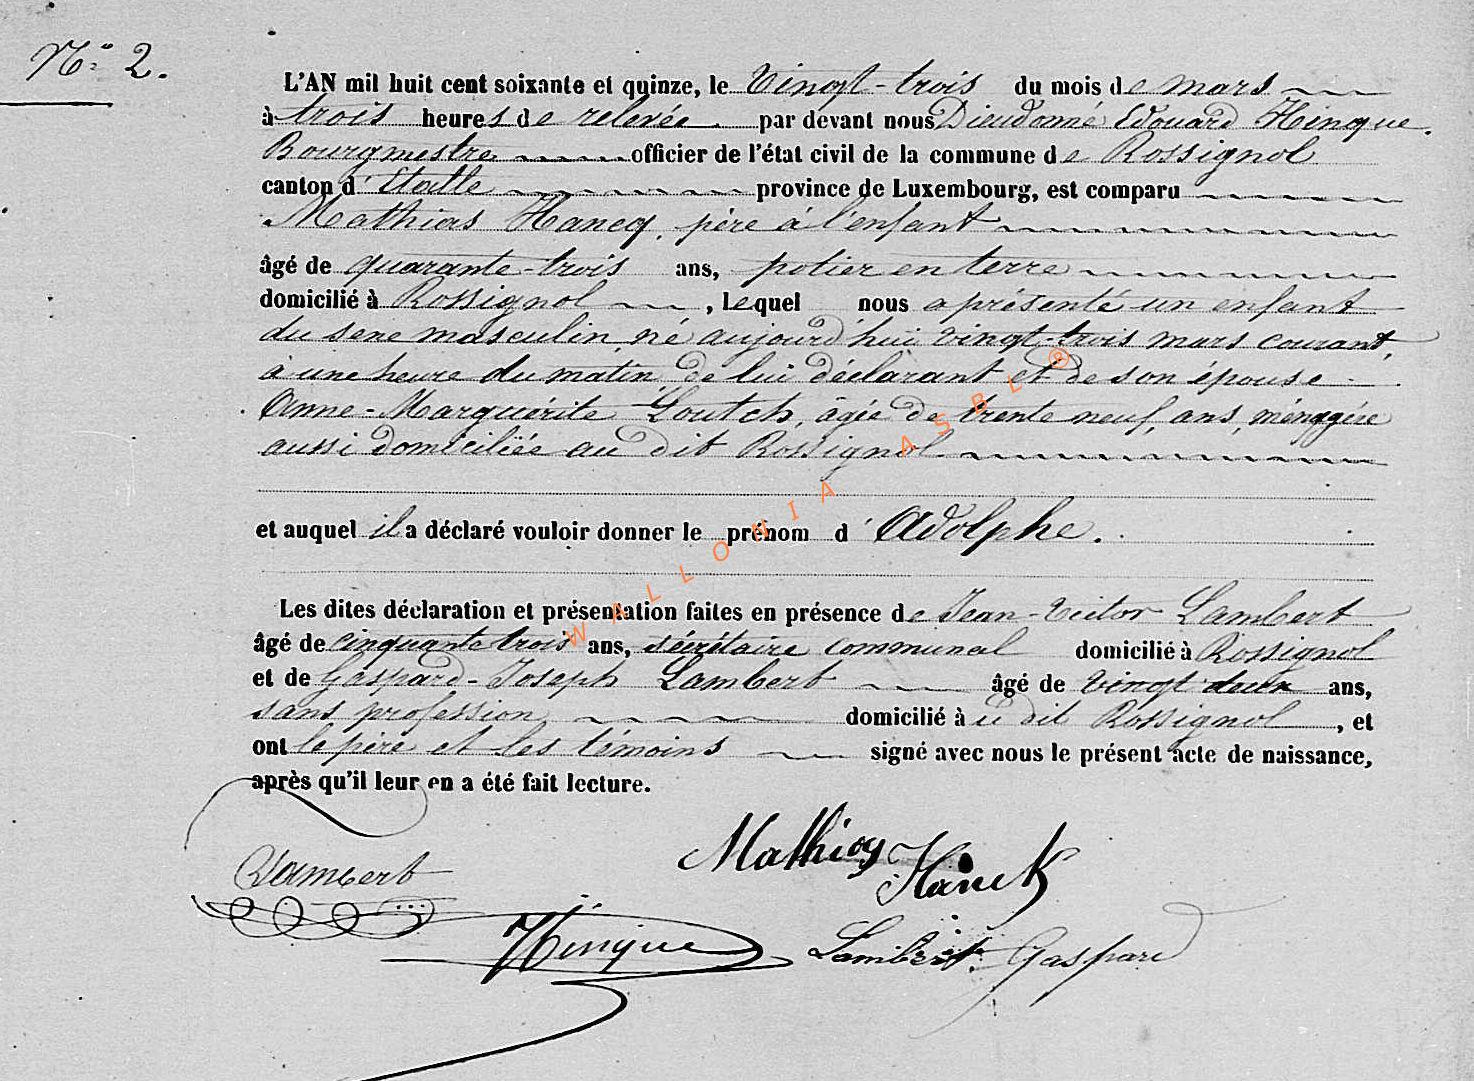 N° 2.
L'AN mil huit cent soixante et quinze, le Vingt-trois du mois de mars
à trois heures de relevée par devant nous Dieudonné Edouard Hinque.
Bourgmestre officier de l'état civil de la commune de Rossignol
canton d'Etalle province de Luxembourg, est comparu
Mathias Hancq, père à l'enfant
âgé de quarante-trois ans, potier en terre
domicilié à Rossignol, lequel nous a présenté un enfant
du sexe masculin, né aujourd'hui vingt-trois mars courant,
à une heure du matin, de lui déclarant et de son épouse
Anne-Marguérite Loutch, âgée de trente neuf ans, ménagère
aussi domiciliée au dit Rossignol
et auquel il a déclaré vouloir donner le prénom d'Adolphe.
Les dites déclaration et présentation faites en présence de Jean-Victor Lambert
âgé de cinquante trois ans, sécrétaire communal domicilié à Rossignol
et de Gaspard-Joseph Lambert âgé de vingt deux ans,
sans profession, domicilié à u dit Rossignol, et
ont le père et les témoins signé avec nous le présent acte de naissance,
après qu'il leur en a été fait lecture.
Mathias
Lambert Hanck
Hinque Lambert Gaspard
WALLONIA ASBL ®